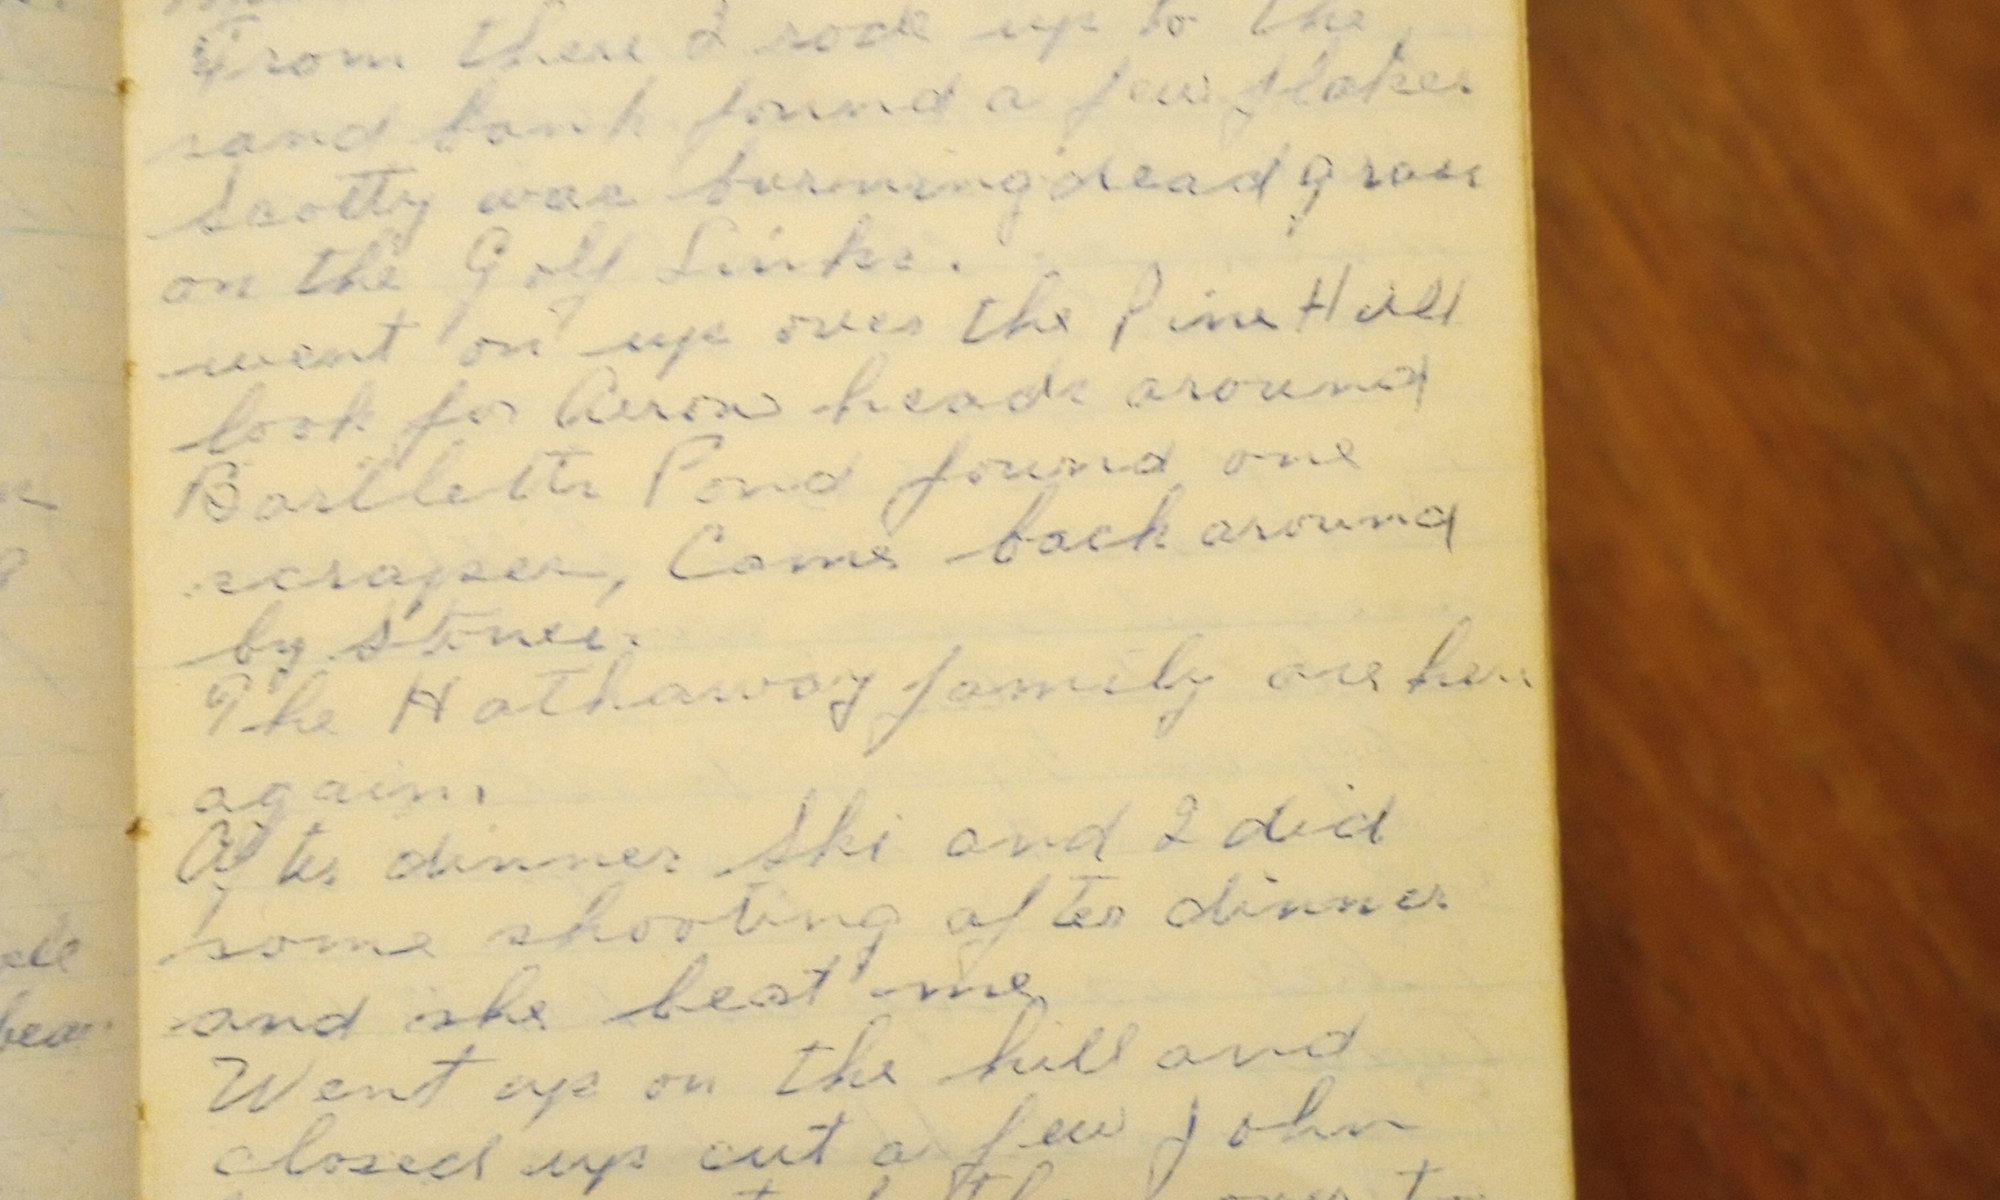 From there I rode up to the
sand bank found a few flakes
Scotty was burning dead grass
on the Golf Links.
went on up over the Pine Hill
look for Arrow heads around
Bartletts Pond found one
scraper, Came back around
by Stones.
The Hathaway family are here
again.
After dinner Ski and I did
some shooting after dinner
and she beat me
Went up on the hill and
closed up cut a few John
over to